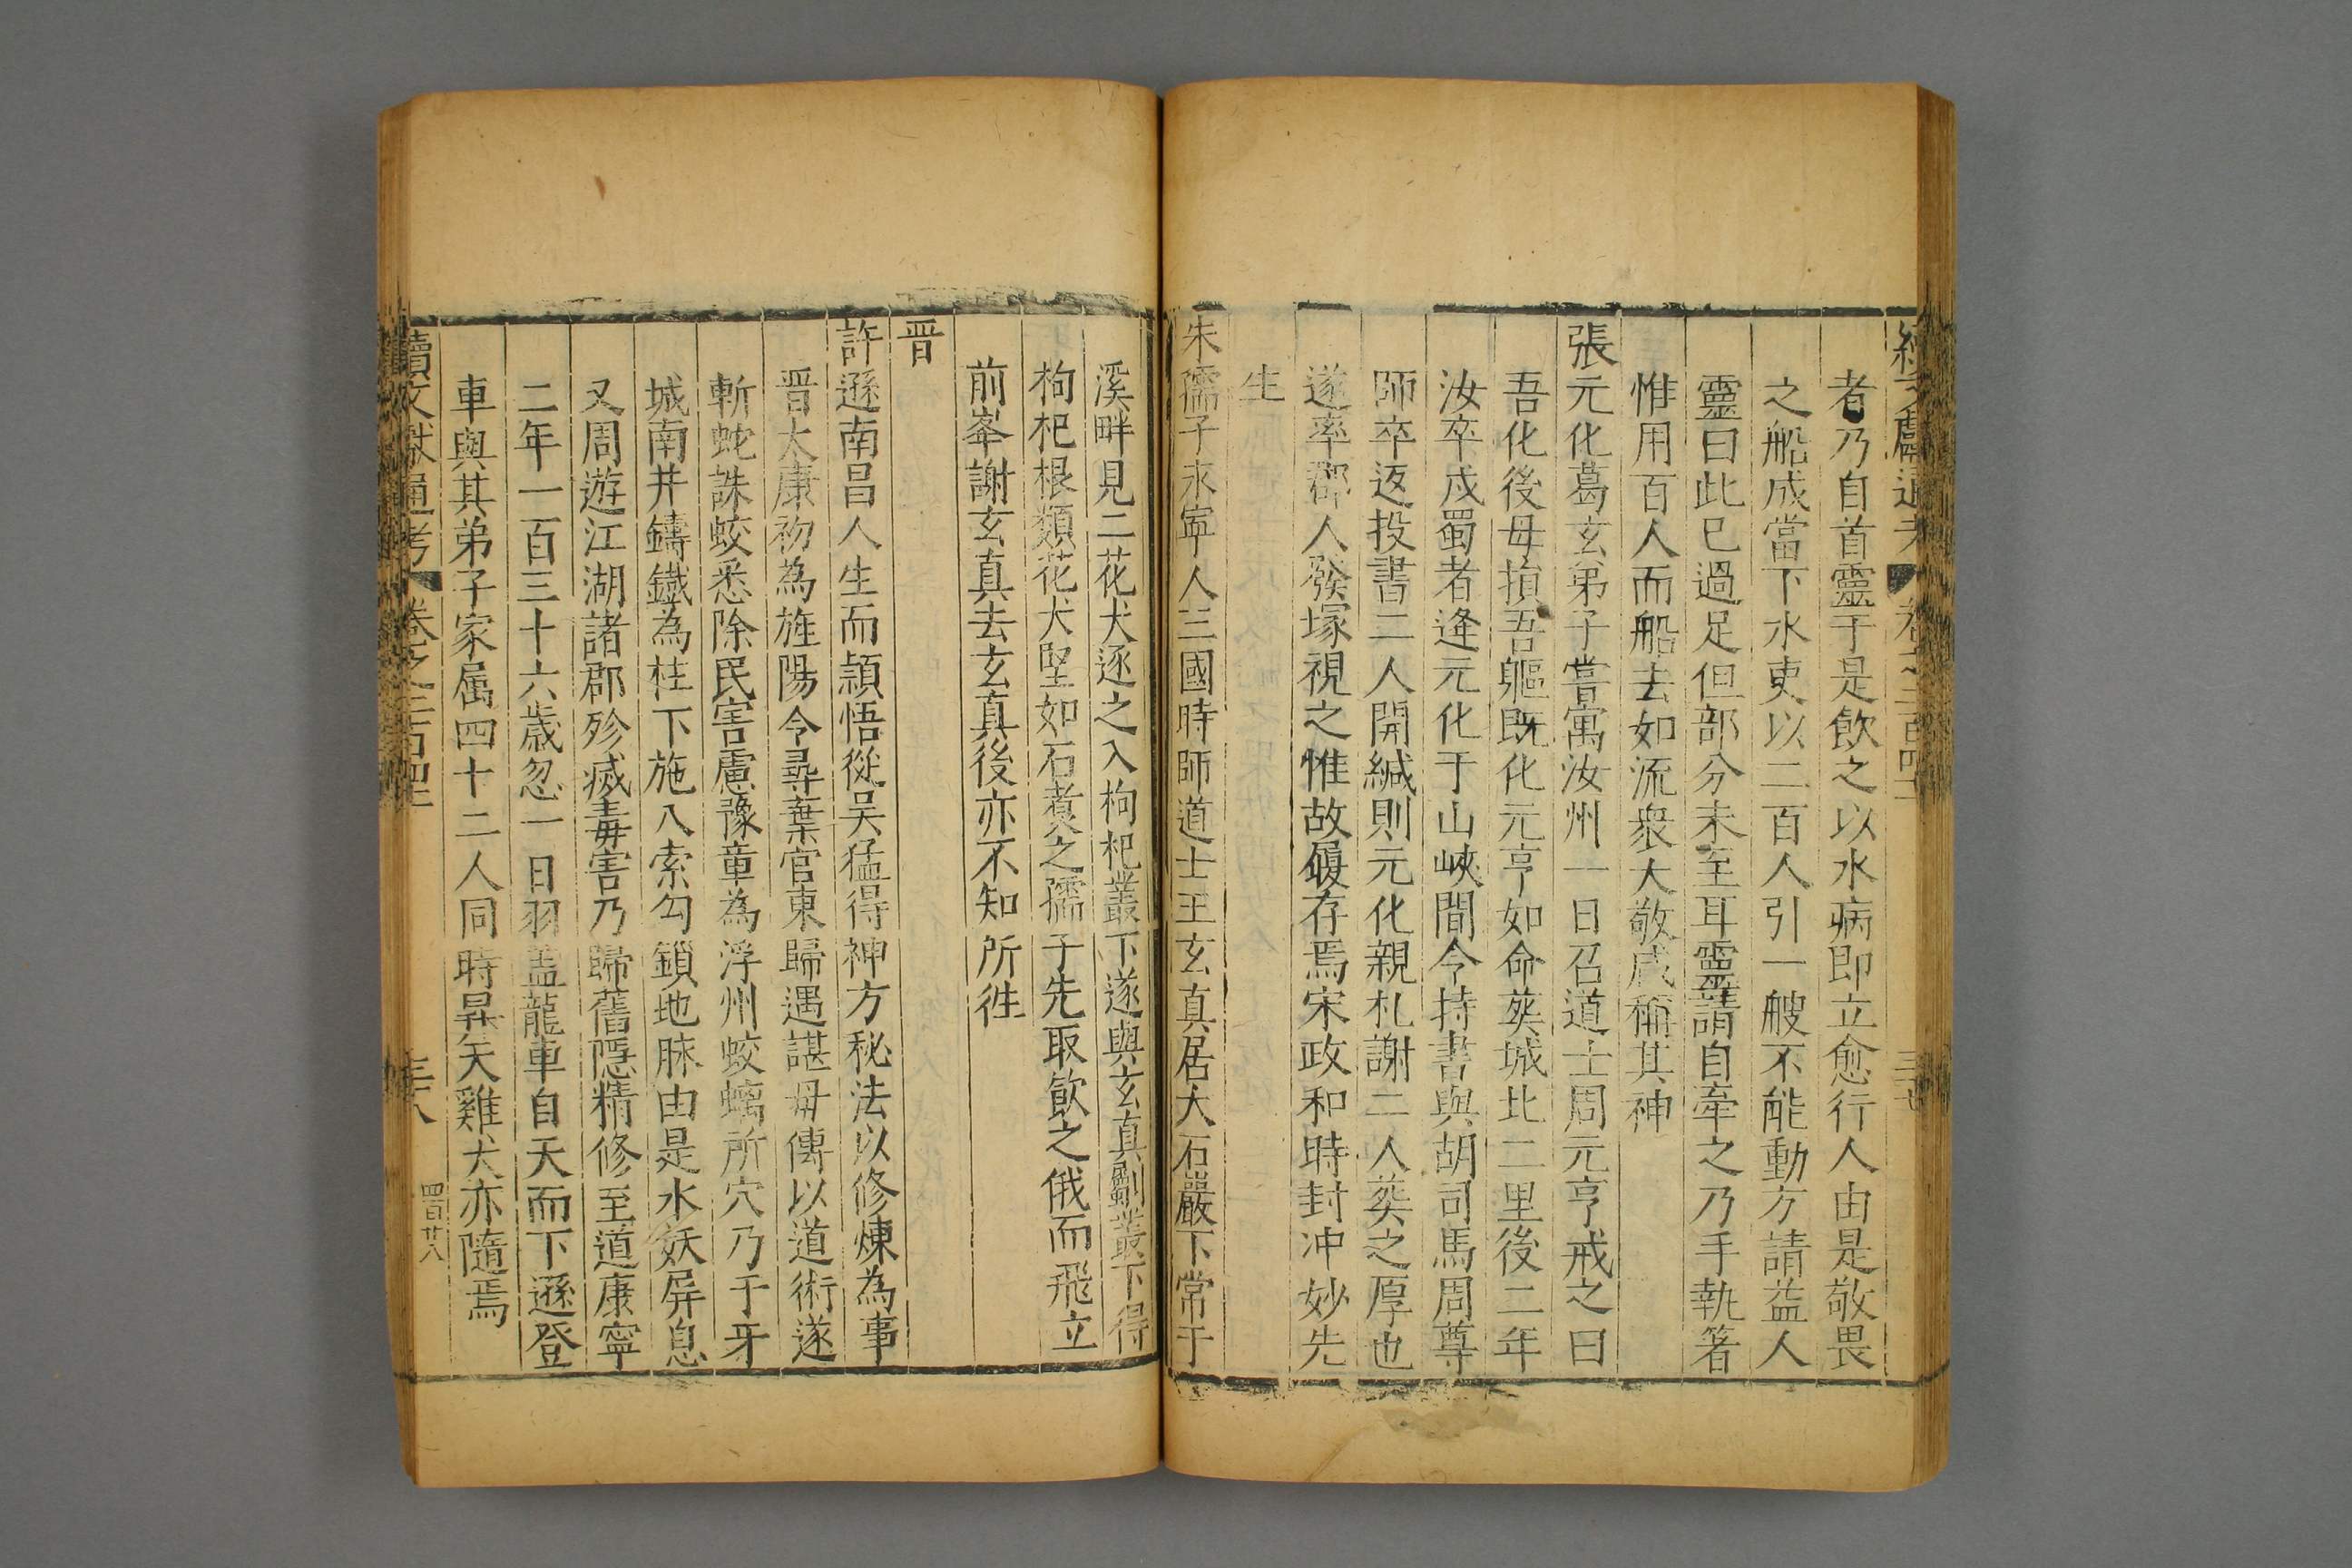 者乃自首靈于是飲之以水病即立愈行人由是敬畏
之船成當下水吏以二百人引一艘不能動方請益人
靈曰此已過足但部分未至耳靈請自牽之乃手執箸
惟用百人而船去如流衆大敬咸稱其神
張元化葛玄弟子嘗寓汝州一日召道士周元亨戒之曰
吾化後毋損吾軀既化元亨如命葬城北二里後二年
汝卒戍蜀者逢元化于山峽間令持書與胡司馬周尊
師卒返投書二人開緘則元化親札謝二人葬之厚也
遂率郡人發塚視之惟故履存焉宋政和時封冲妙先
生
朱孺子永寧人三國時師道士王玄真居大石巖下常于
溪畔見二花犬逐之入枸杞叢下遂與玄真劚叢下得
枸杞根類花犬堅如石煮之孺子先取飲之俄而飛立
前峯謝玄真去玄真後亦不知所徃
晋
許遜南昌人生而頴悟從吴猛得神方秘法以修煉為事
晋太康初為旌陽令尋棄官東歸遇諶母傳以道術遂
斬蛇誅蛟悉除民害慮豫章為浮州蛟螭所穴乃于牙
城南井鑄鐵為柱下施八索勾鎖地脉由是水妖屏息
又周遊江湖諸郡殄滅毒害乃歸舊隱精修至道康寧
二年一百三十六歲忽一日羽盖龍車自天而下遜登
車與其弟子家属四十二人同時昇天雞犬亦隨焉
續文獻通考 卷之二百四十二 三十八 四百廿八